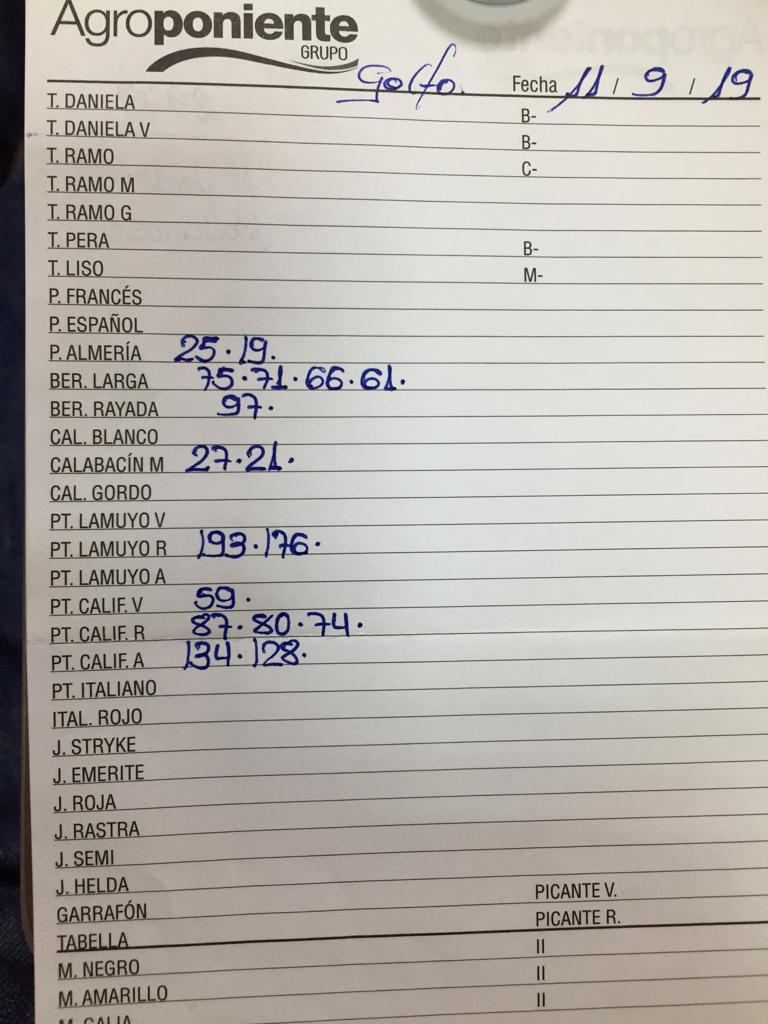 Agroponiente
GRUPO
Golfo. Fecha 11 / 9 / 19
T. DANIELA B-
T. DANIELA V B-
T. RAMO C-
T. RAMO M
T. RAMO G
T. PERA B-
T. LISO M-
P. FRANCÉS
P. ESPAÑOL
P. ALMERÍA 25.19.
BER. LARGA 75.71.66.61.
BER. RAYADA 97.
CAL. BLANCO
CALABACÍN M 27.21.
CAL. GORDO
PT. LAMUYO V
PT. LAMUYO R 193.176.
PT. LAMUYO A
PT. CALIF. V 59.
PT. CALIF. R 87.80.74.
PT. CALIF. A 134.128.
PT. ITALIANO
ITAL. ROJO
J. STRYKE
J. EMERITE
J. ROJA
J. RASTRA
J. SEMI
J. HELDA PICANTE V.
GARRAFÓN PICANTE R.
TABELLA II
M. NEGRO II
M. AMARILLO II